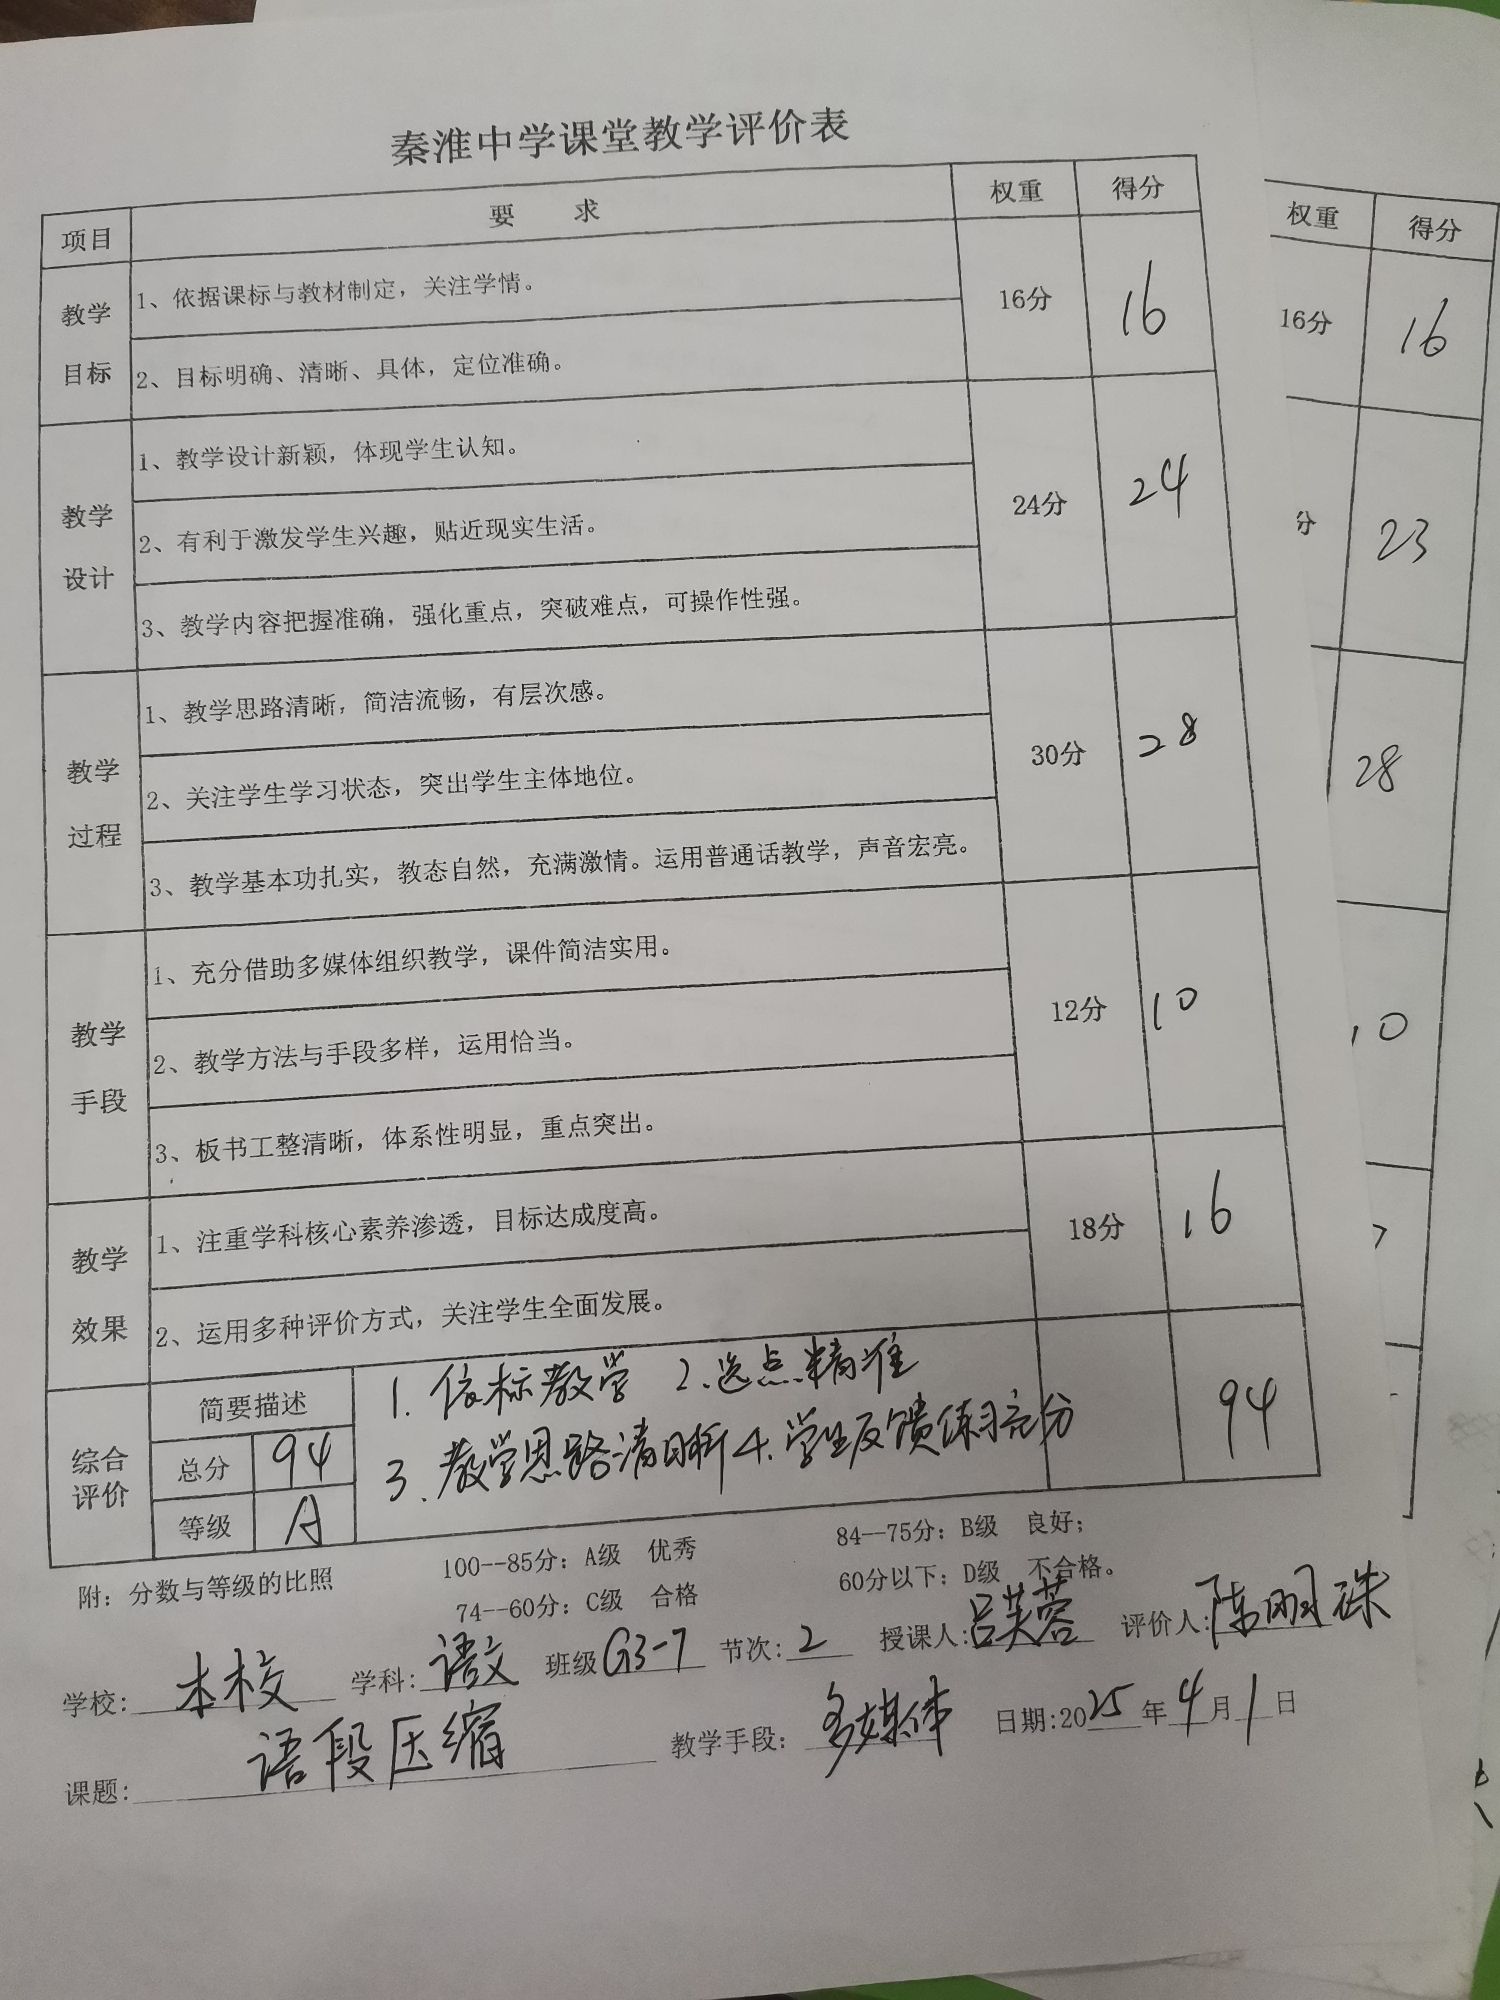 秦淮中学课堂教学评价表
项目 要 求 权重 得分
教学目标 1、依据课标与教材制定，关注学情。 16分 16
2、目标明确、清晰、具体，定位准确。
教学设计 1、教学设计新颖，体现学生认知。 24分 24
2、有利于激发学生兴趣，贴近现实生活。
3、教学内容把握准确，强化重点，突破难点，可操作性强。
教学过程 1、教学思路清晰，简洁流畅，有层次感。 30分 28
2、关注学生学习状态，突出学生主体地位。
3、教学基本功扎实，教态自然，充满激情。运用普通话教学，声音宏亮。
教学手段 1、充分借助多媒体组织教学，课件简洁实用。 12分 10
2、教学方法与手段多样，运用恰当。
3、板书工整清晰，体系性明显，重点突出。
教学效果 1、注重学科核心素养渗透，目标达成度高。 18分 16
2、运用多种评价方式，关注学生全面发展。
综合评价 简要描述 1. 依标教学 2.选点精准 94
总分 94 3. 教学思路清晰 4.学生反馈练习充分
等级 A
附：分数与等级的比照 100--85分：A级 优秀 84--75分：B级 良好；
74--60分：C级 合格 60分以下：D级 不合格。
学校: 本校 学科: 语文 班级 G3-7 节次: 2 授课人: 吕芙蓉 评价人: 陈明珠
课题: 语段压缩 教学手段: 多媒体 日期:2025年4月1日
权重 得分
16分 16
分 23
28
10